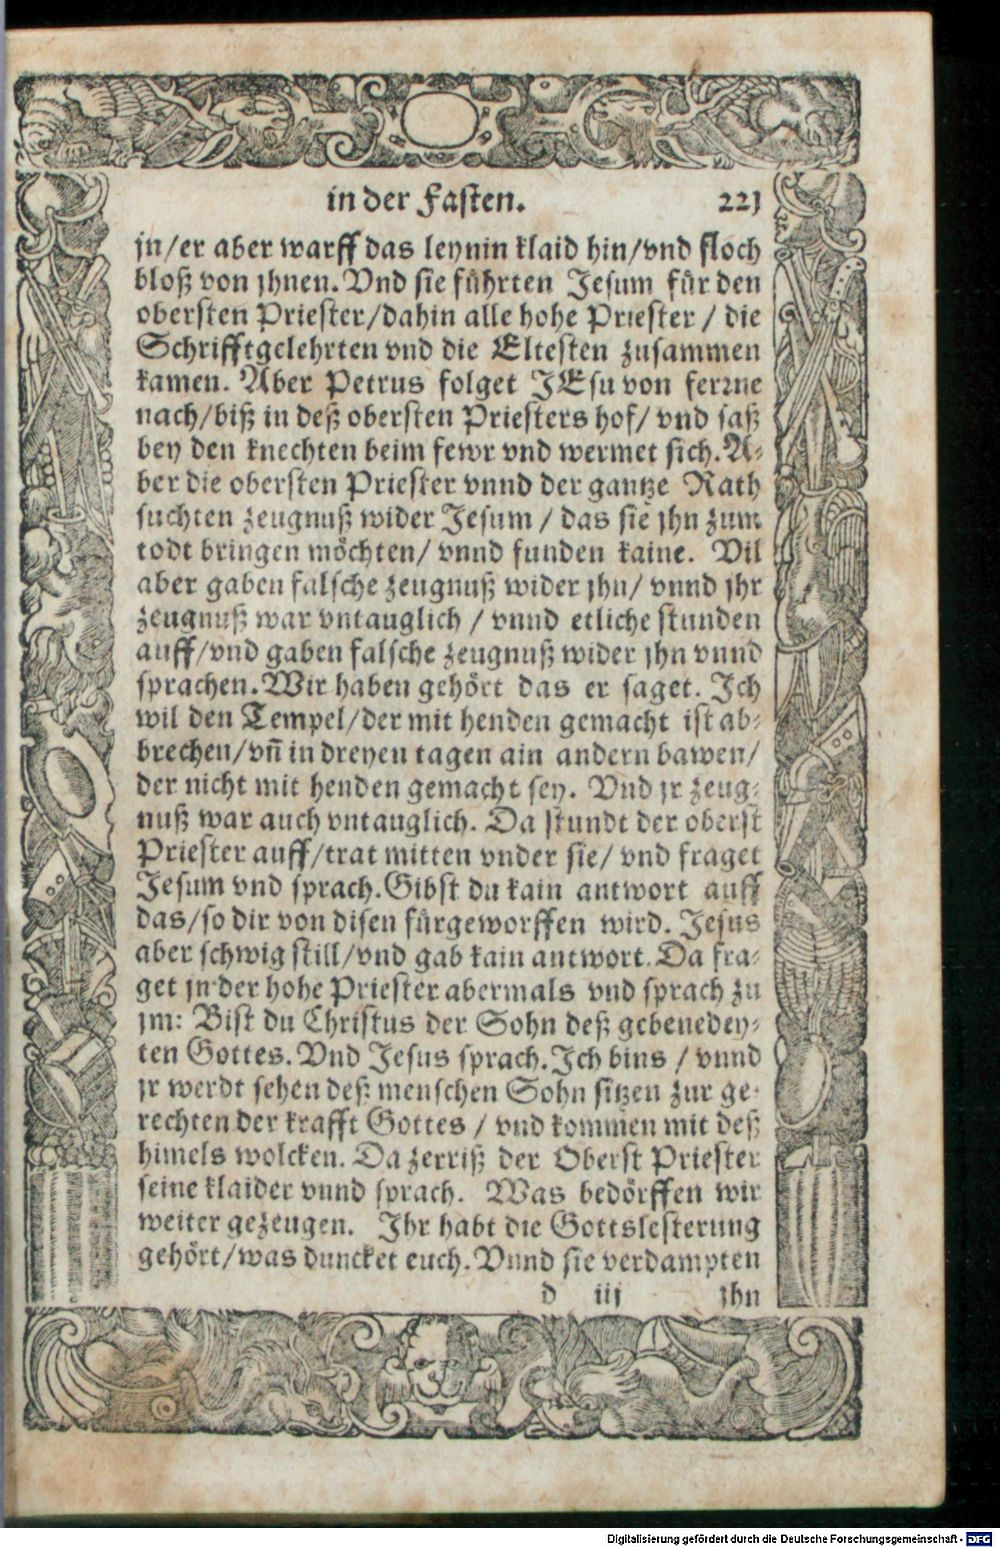 in der Fasten. 221
jn/er aber warff das leynin klaid hin/vnd floch
bloß von jhnen. Vnd sie führten Jesum für den
obersten Priester/dahin alle hohe Priester / die
Schrifftgelehrten vnd die Eltesten zusammen
kamen. Aber Petrus folget JEsu von ferrne
nach/biß in deß obersten Priesters hof/ vnd saß
bey den knechten beim fewr vnd wermet sich. A-
ber die obersten Priester vnnd der gantze Rath
suchten zeugnuß wider Jesum / das sie jhn zum
todt bringen möchten/ vnnd funden kaine. Vil
aber gaben falsche zeugnuß wider jhn/ vnnd jhr
zeugnuß war vntauglich / vnnd etliche stunden
auff/vnd gaben falsche zeugnuß wider jhn vnnd
sprachen. Wir haben gehört das er saget. Ich
wil den Tempel/der mit henden gemacht ist ab-
brechen/vñ in dreyen tagen ain andern bawen/
der nicht mit henden gemacht sey. Vnd jr zeug-
nuß war auch vntauglich. Da stundt der oberst
Priester auff/trat mitten vnder sie/ vnd fraget
Jesum vnd sprach. Gibst du kain antwort auff
das/so dir von disen fürgeworffen wird. Jesus
aber schwig still/vnd gab kain antwort. Da fra-
get jn der hohe Priester abermals vnd sprach zu
jm: Bist du Christus der Sohn deß gebenedey-
ten Gottes. Vnd Jesus sprach. Ich bins / vnnd
jr werdt sehen deß menschen Sohn sitzen zur ge-
rechten der krafft Gottes / vnd kommen mit deß
himels wolcken. Da zerriß der Oberst Priester
seine klaider vnnd sprach. Was bedörffen wir
weiter gezeugen. Ihr habt die Gottslesterung
gehört/was duncket euch. Vnnd sie verdampten
d iij jhn
Digitalisierung gefördert durch die Deutsche Forschungsgemeinschaft - DFG